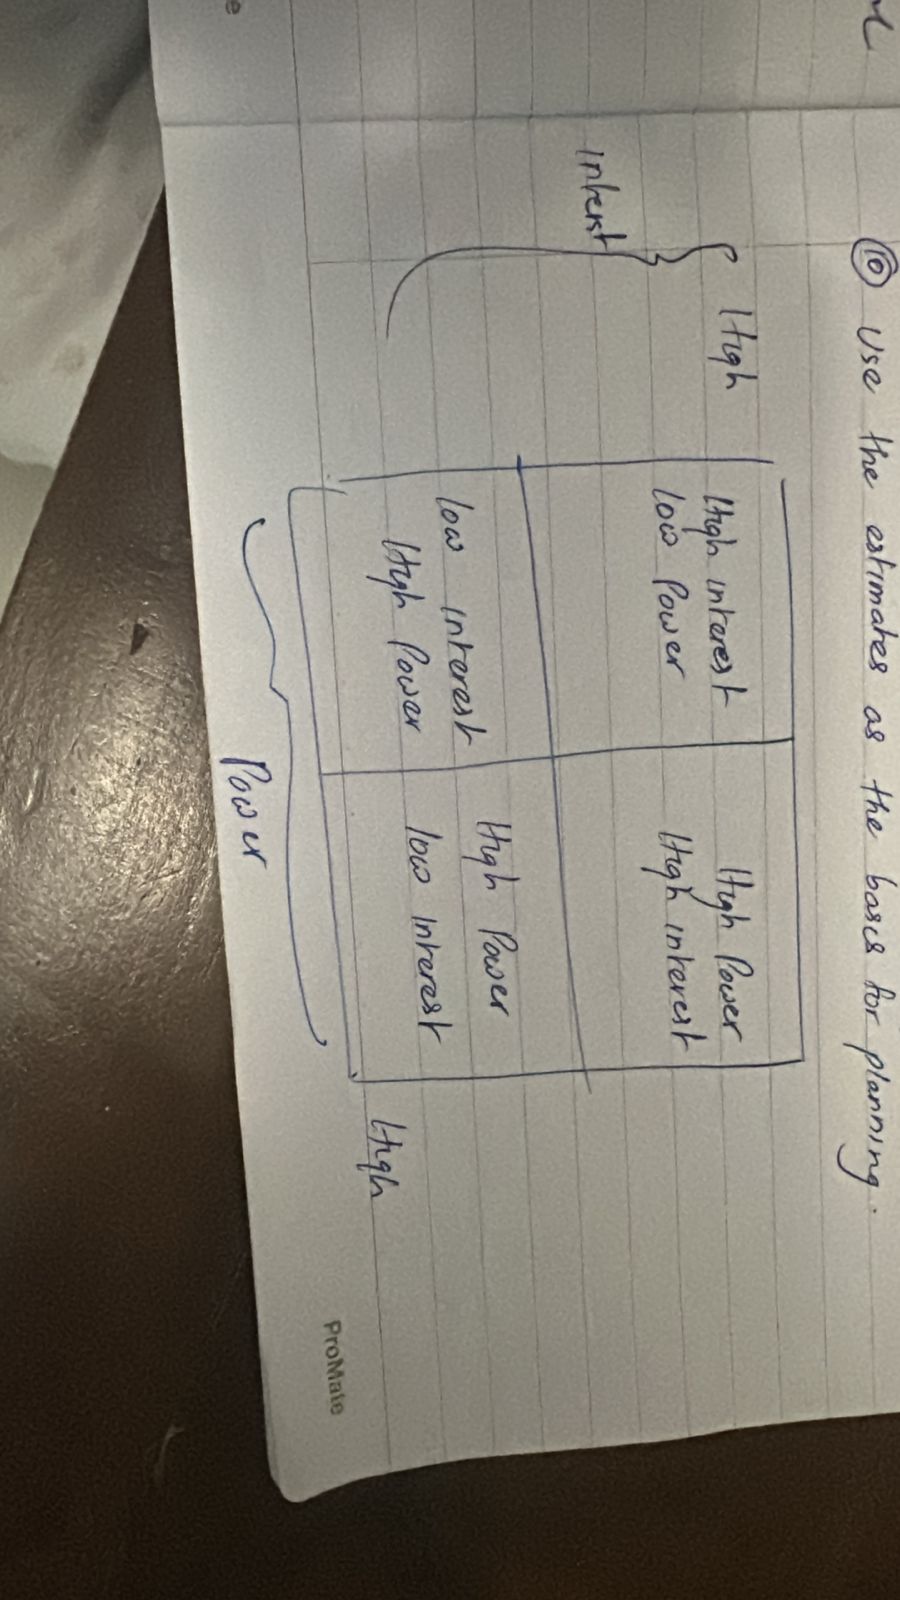 ⑩ Use the estimates as the basis for planning.
High
Interst
High interest
low Power
High Power
High interest
low interest
High Power
High Power
low interest
High
Power
ProMate